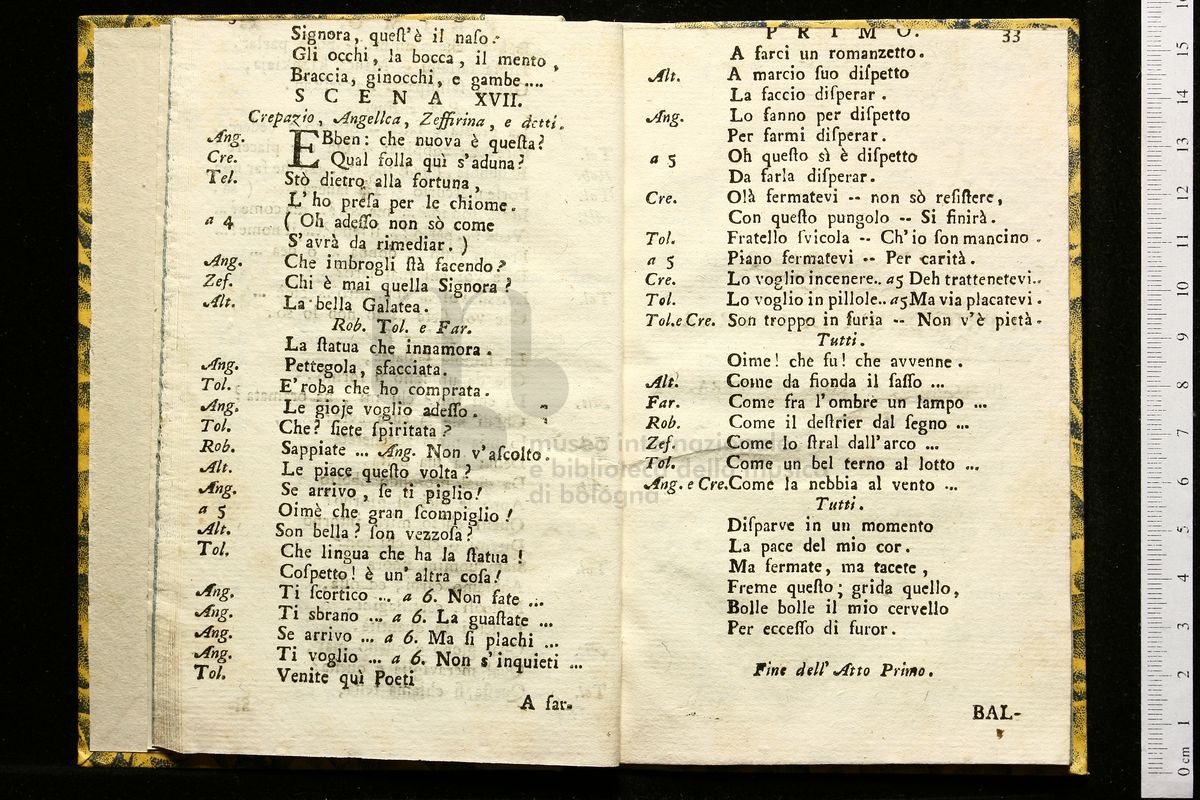 Signora, queſt'è il naſo.
Gli occhi, la bocca, il mento,
Braccia, ginocchi, e gambe....
SCENA XVII.
Crepazio, Angellca, Zeffirina, e detti.
Ang. EBben: che nuova è queſta?
Cre. Qual folla quì s'aduna?
Tel. Stò dietro alla fortuna,
L'ho preſa per le chiome.
a 4 (Oh adeſſo non sò come
S'avrà da rimediar.)
Ang. Che imbrogli ſtà facendo?
Zef. Chi è mai quella Signora?
Alt. La bella Galatea.
Rob. Tol. e Far.
La ſtatua che innamora.
Ang. Pettegola, sfacciata.
Tol. E' roba che ho comprata.
Ang. Le gioje voglio adeſſo.
Tol. Che? ſiete ſpiritata?
Rob. Sappiate ... Ang. Non v'aſcolto.
Alt. Le piace queſto volta?
Ang. Se arrivo, ſe ti piglio!
a 5 Oimè che gran ſcompiglio!
Alt. Son bella? ſon vezzoſa?
Tol. Che lingua che ha la ſtatua!
Coſpetto! è un' altra coſa!
Ang. Ti ſcortico ... a 6. Non fate ...
Ang. Ti sbrano ... a 6. La guaſtate ...
Ang. Se arrivo ... a 6. Ma ſi plachi ...
Ang. Ti voglio ... a 6. Non s'inquieti ...
Tol. Venite quì Poeti
A far-
PRIMO. 33
A farci un romanzetto.
Alt. A marcio ſuo diſpetto
La faccio diſperar.
Ang. Lo fanno per diſpetto
Per farmi diſperar.
a 5 Oh queſto sì è diſpetto
Da farla diſperar.
Cre. Olà fermatevi -- non sò reſiſtere,
Con queſto pungolo -- Si finirà.
Tol. Fratello ſvicola -- Ch'io ſon mancino.
a 5 Piano fermatevi -- Per carità.
Cre. Lo voglio incenere.. a5 Deh trattenetevi..
Tol. Lo voglio in pillole.. a5 Ma via placatevi.
Tol. e Cre. Son troppo in furia -- Non v'è pietà.
Tutti.
Oime! che fu! che avvenne.
Alt. Come da fionda il ſaſſo ...
Far. Come fra l'ombre un lampo ...
Rob. Come il deſtrier dal ſegno ...
Zef. Come lo ſtral dall'arco ...
Tol. Come un bel terno al lotto ...
Ang. e Cre. Come la nebbia al vento ...
Tutti.
Diſparve in un momento
La pace del mio cor.
Ma fermate, ma tacete,
Freme queſto; grida quello,
Bolle bolle il mio cervello
Per ecceſſo di furor.
Fine dell' Atto Primo.
BAL-
museo internazionale
e biblioteca della musica
di bologna
0 cm 1 2 3 4 5 6 7 8 9 10 11 12 13 14 15